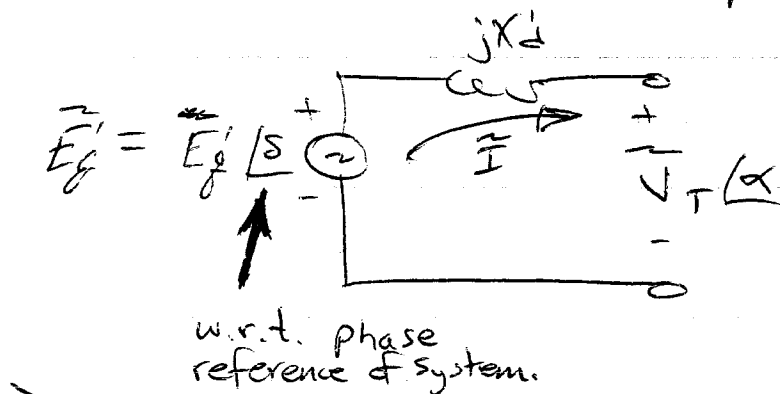 jX'd
Ẽ'g = E'g ∠δ
+
~
-
Ĩ
+
Ṽ T ∠α
-
w.r.t. phase
reference of system.